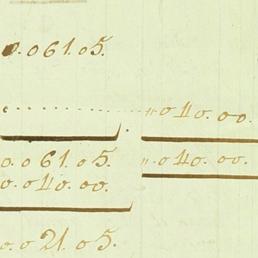 0.061.05.
„ 040.00.
0.061.05. „ 040.00.
0.040.00.
0.021.05.